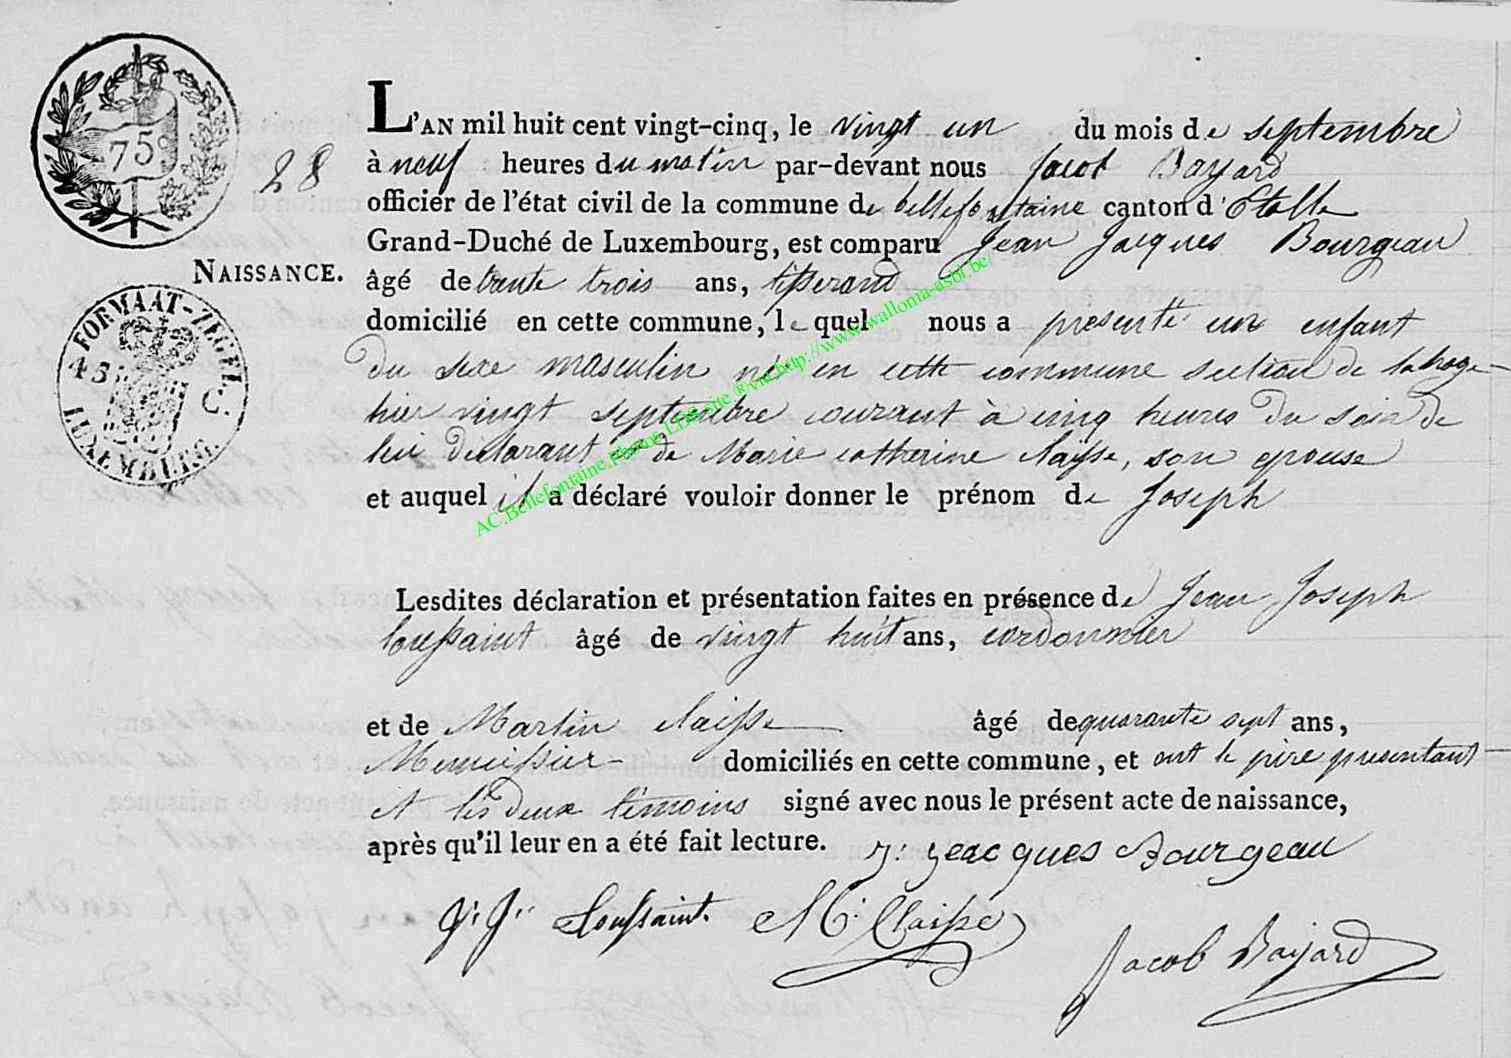 75
28
NAISSANCE.
FORMAAT-ZEGEL
43 C
LUXEMBURG.
L'AN mil huit cent vingt-cinq, le vingt un du mois de septembre
à neuf heures du matin par-devant nous Jacob Bayard
officier de l'état civil de la commune de bellefontaine canton d'Etalle
Grand-Duché de Luxembourg, est comparu Jean Jacques Bourgeau
âgé de trente trois ans, tisserand
domicilié en cette commune, lequel nous a presenté un enfant
du sexe masculin né en cette commune section de lahage
hier vingt septembre courant à cinq heures du soir de
lui declarant et de Marie catherine claisse, son epouse
et auquel il a déclaré vouloir donner le prénom de Joseph
Lesdites déclaration et présentation faites en présence de Jean Joseph
toussaint âgé de vingt huit ans, cordonnier
et de Martin claisse âgé de quarante sept ans,
Menuissier domiciliés en cette commune, et ont le père presentant
et les deux témoins signé avec nous le présent acte de naissance,
après qu'il leur en a été fait lecture. J: Jeacques Bourgeau
J. J. toussaint M: Claisse
Jacob Bayard
AC.Bellefontaine.Photos.LDS-site ®via http://www.wallonia-asbl.be